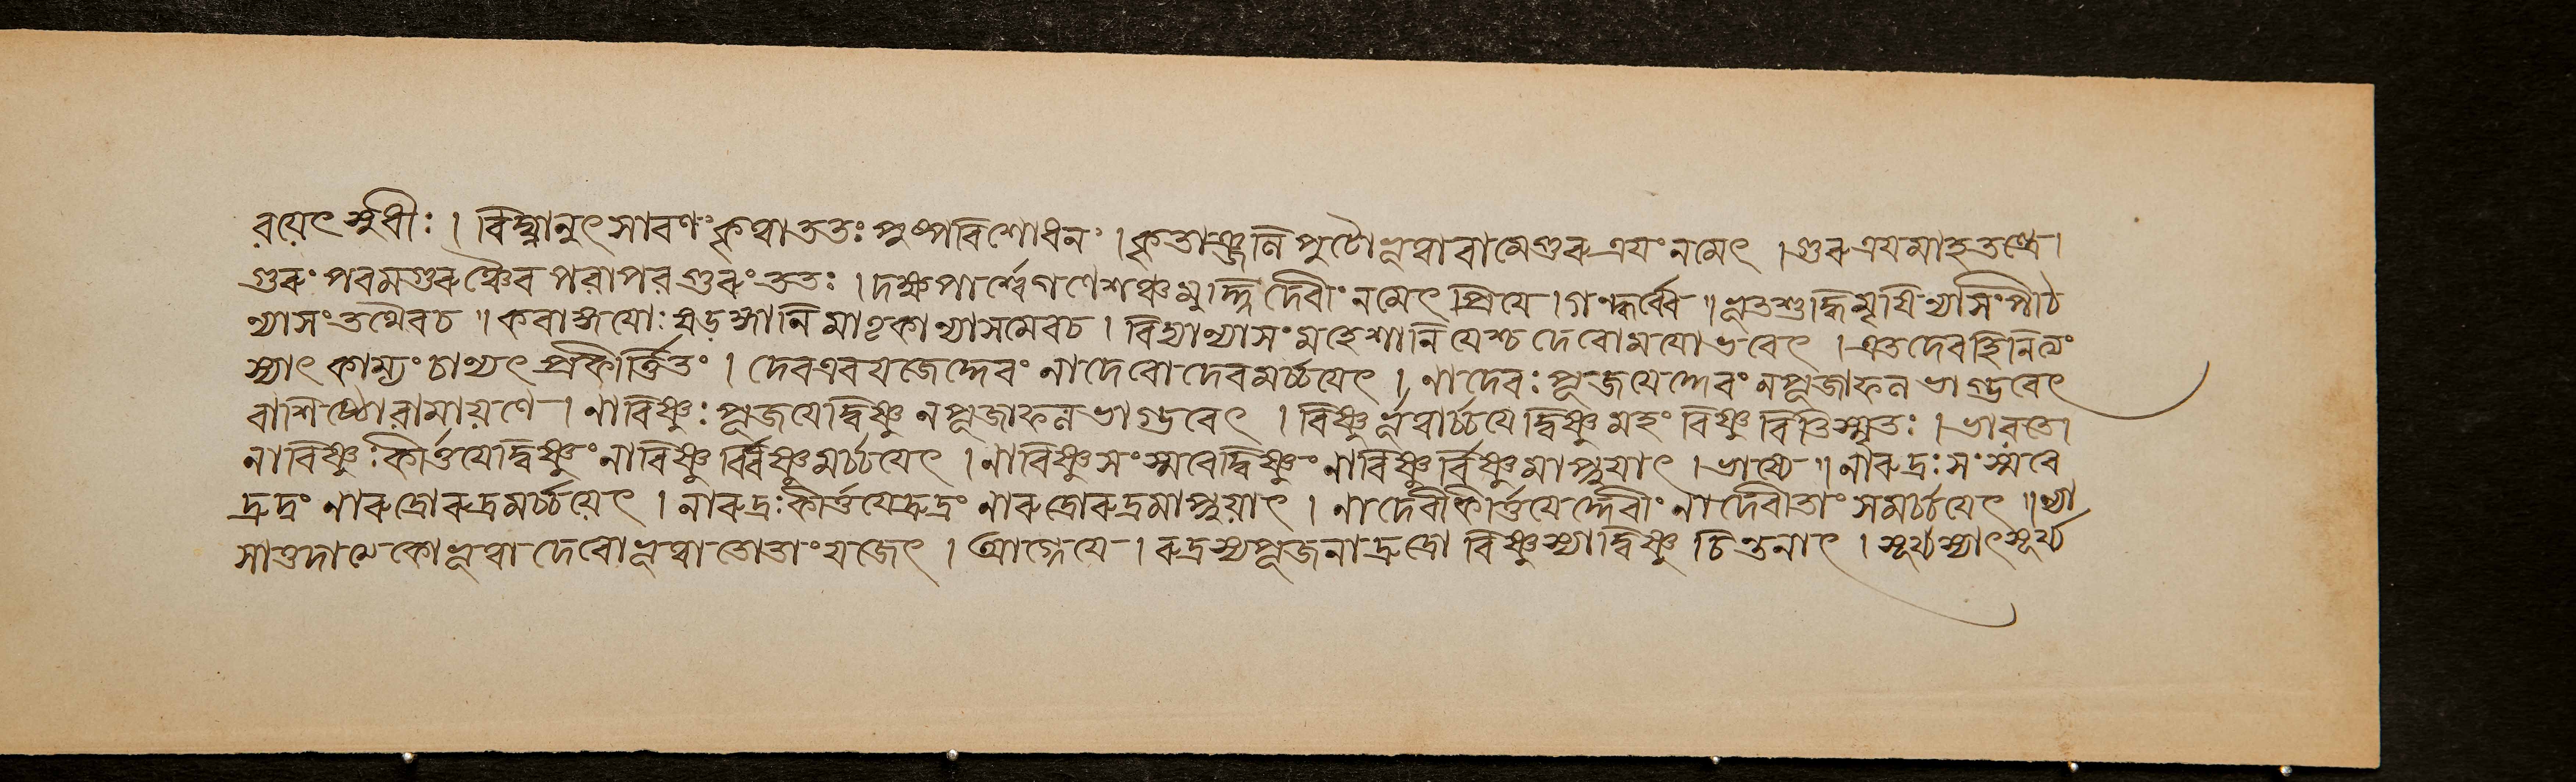 রয়েৎ সুধীঃ । বিঘ্নানুৎসারণং কৃত্বা ততঃ পুষ্পবিশোধনং । কৃতাঞ্জলিপুটোভূত্বা বামেগুরুত্রয়ং নমেৎ । গুরুত্রয়মাহ তন্ত্রে।
গুরুং পরমগুরুঞ্চৈব পরাপরগুরুং ততঃ । দক্ষপার্শ্বেগণেশঞ্চ মূর্দ্ধ্নিদেবীং নমেৎ প্রিয়ে । গন্ধর্ব্বে ॥ ভূতশুদ্ধিমৃষিন্যাসং পীঠ
ন্যাসং তথৈবচ ॥ করাঙ্গয়োঃ ষড়ঙ্গানি মাতৃকান্যাসমেবচ । বিদ্যান্যাসং মহেশানি যেশ্চ দেবোময়ো ভবেৎ । এতদেবহিনিত্যং
স্যাৎ কাম্যং চান্যৎ প্রকীর্ত্তিতং । দেবএবযজেদ্দেবং নাদেবোদেবমর্চ্চয়েৎ । নাদেবঃ পূজয়েদ্দেবং নপূজাফলভাগ্ভবেৎ
বাশিষ্ঠোরামায়ণে । নাবিষ্ণুঃ পূজয়েদ্বিষ্ণু নপূজাফলভাগ্ভবেৎ । বিষ্ণুর্ভূত্বার্চ্চয়েদ্বিষ্ণুমহং বিষ্ণু রিতিস্মৃতঃ । ভারতে।
নাবিষ্ণুঃকীর্ত্তয়েদ্বিষ্ণুং নাবিষ্ণু র্বিষ্ণুমর্চ্চয়েৎ । নাবিষ্ণুসংস্মরেদ্বিষ্ণুং নাবিষ্ণুর্বিষ্ণুমাপ্নুয়াৎ । ভাষ্যে ॥ নারুদ্রঃ সংস্মরে
দ্রুদ্রং নারুদ্রোরুদ্রমর্চ্চয়েৎ । নারুদ্রঃকীর্ত্তয়েদ্রুদ্রং নারুদ্রোরুদ্রমাপ্নুয়াৎ । নাদেবীকীর্ত্তয়েদ্দেবীং নাদেবীতাং সমর্চ্চয়েৎ ॥ ন্যা
সাত্তদাত্মকোভূত্বা দেবোভূত্বা তোতাং যজেৎ । আগ্নেয়ে । রুদ্রস্যপূজনাদ্রুদ্রো বিষ্ণুস্যাদ্বিষ্ণু চিন্তনাৎ । সূর্য্যস্যাৎসূর্য্য